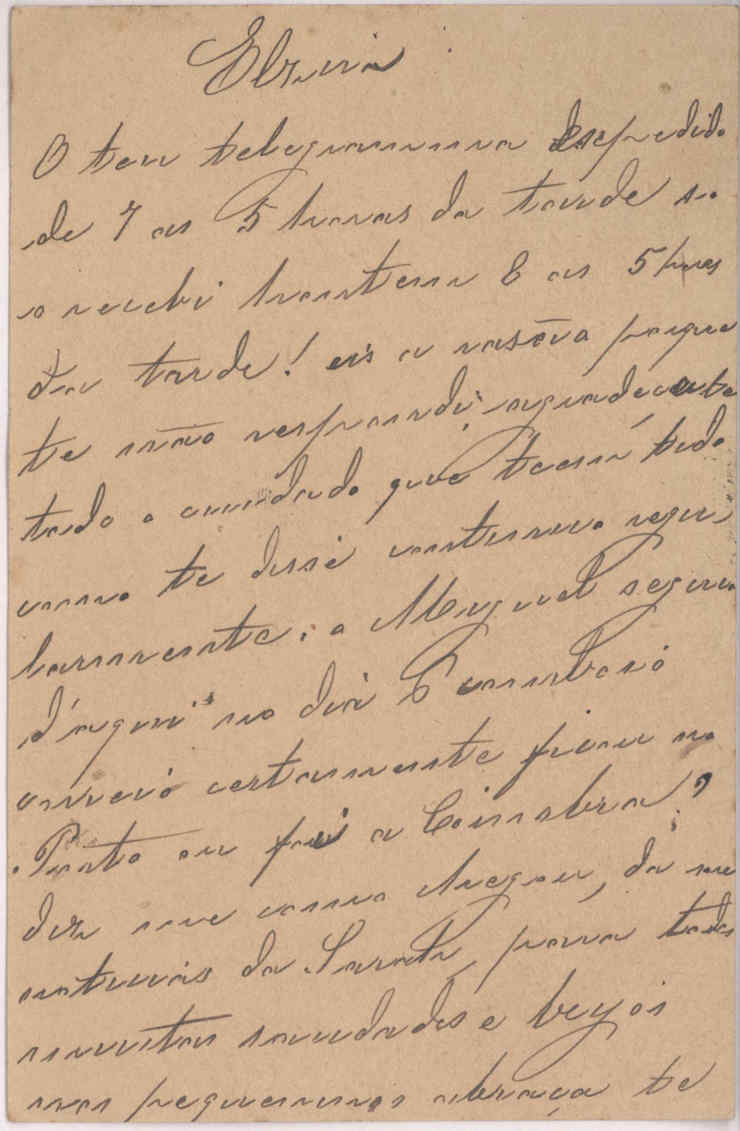 Elzira
O teu telegramma despedido
de 7 as 5 horas da tarde so
o recebi hontem 8 as 5 horas
da tarde! eis a rasão porque
te não respondi, agradecote
todo o cuidado que teens tido
como te disse continuo regu
larmente. o Miguel seguiu
d'aqui no dia 6 comboio
correio certamente ficou no
Porto ou foi a Coimbra?
diz me como chegou, dá me
noticias da Sarah, para todos
muitas saudades e beijos
aos pequeninos abraça te